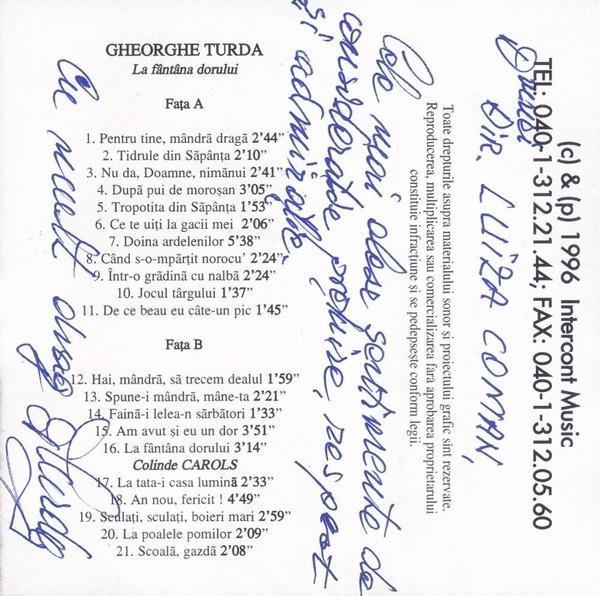 GHEORGHE TURDA
La fântâna dorului
Faţa A
1. Pentru tine, mândră dragă 2’44”
2. Tidrule din Săpânţa 2’10”
3. Nu da, Doamne, nimănui 2’41”
4. După pui de moroşan 3’05”
5. Tropotita din Săpânţa 1’53”
6. Ce te uiţi la gacii mei 2’06”
7. Doina ardelenilor 5’38”
8. Când s-o-mpărţit norocu’ 2’24”
9. Într-o grădină cu nalbă 2’24”
10. Jocul târgului 1’37”
11. De ce beau eu câte-un pic 1’45”
Faţa B
12. Hai, mândră, să trecem dealul 1’59”
13. Spune-i mândră, mâne-ta 2’21”
14. Faină-i lelea-n sărbători 1’33”
15. Am avut şi eu un dor 3’51”
16. La fântâna dorului 3’14”
Colinde CAROLS
17. La tata-i casa lumină 2’33”
18. An nou, fericit ! 4’49”
19. Sculaţi, sculaţi, boieri mari 2’59”
20. La poalele pomilor 2’09”
21. Scoală, gazdă 2’08”
(c) & (p) 1996 Intercont Music
TEL: 040-1-312.21.44; FAX: 040-1-312.05.60
Toate drepturile asupra materialului sonor şi proiectului grafic sînt rezervate.
Reproducerea, multiplicarea sau comercializarea fară aprobarea proprietarului
constituie infracţiune şi se pedepseşte conform legii.
Dir. LUIZA COMAN,
Cele mai alese sentimente de
consideraţie, preţuire, respect
şi admiraţie
Cu mult drag